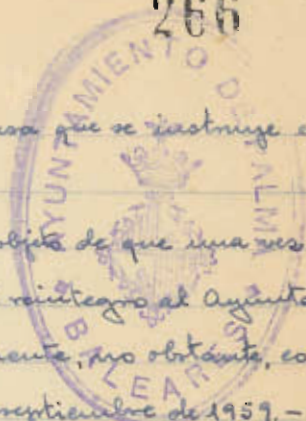 266
AYUNTAMIENTO DE PALMA
BALEARES
que se instruye
objeto de que una vez
reintegro al Ayunta
mente, no obstante, co
septiembre de 1959.-